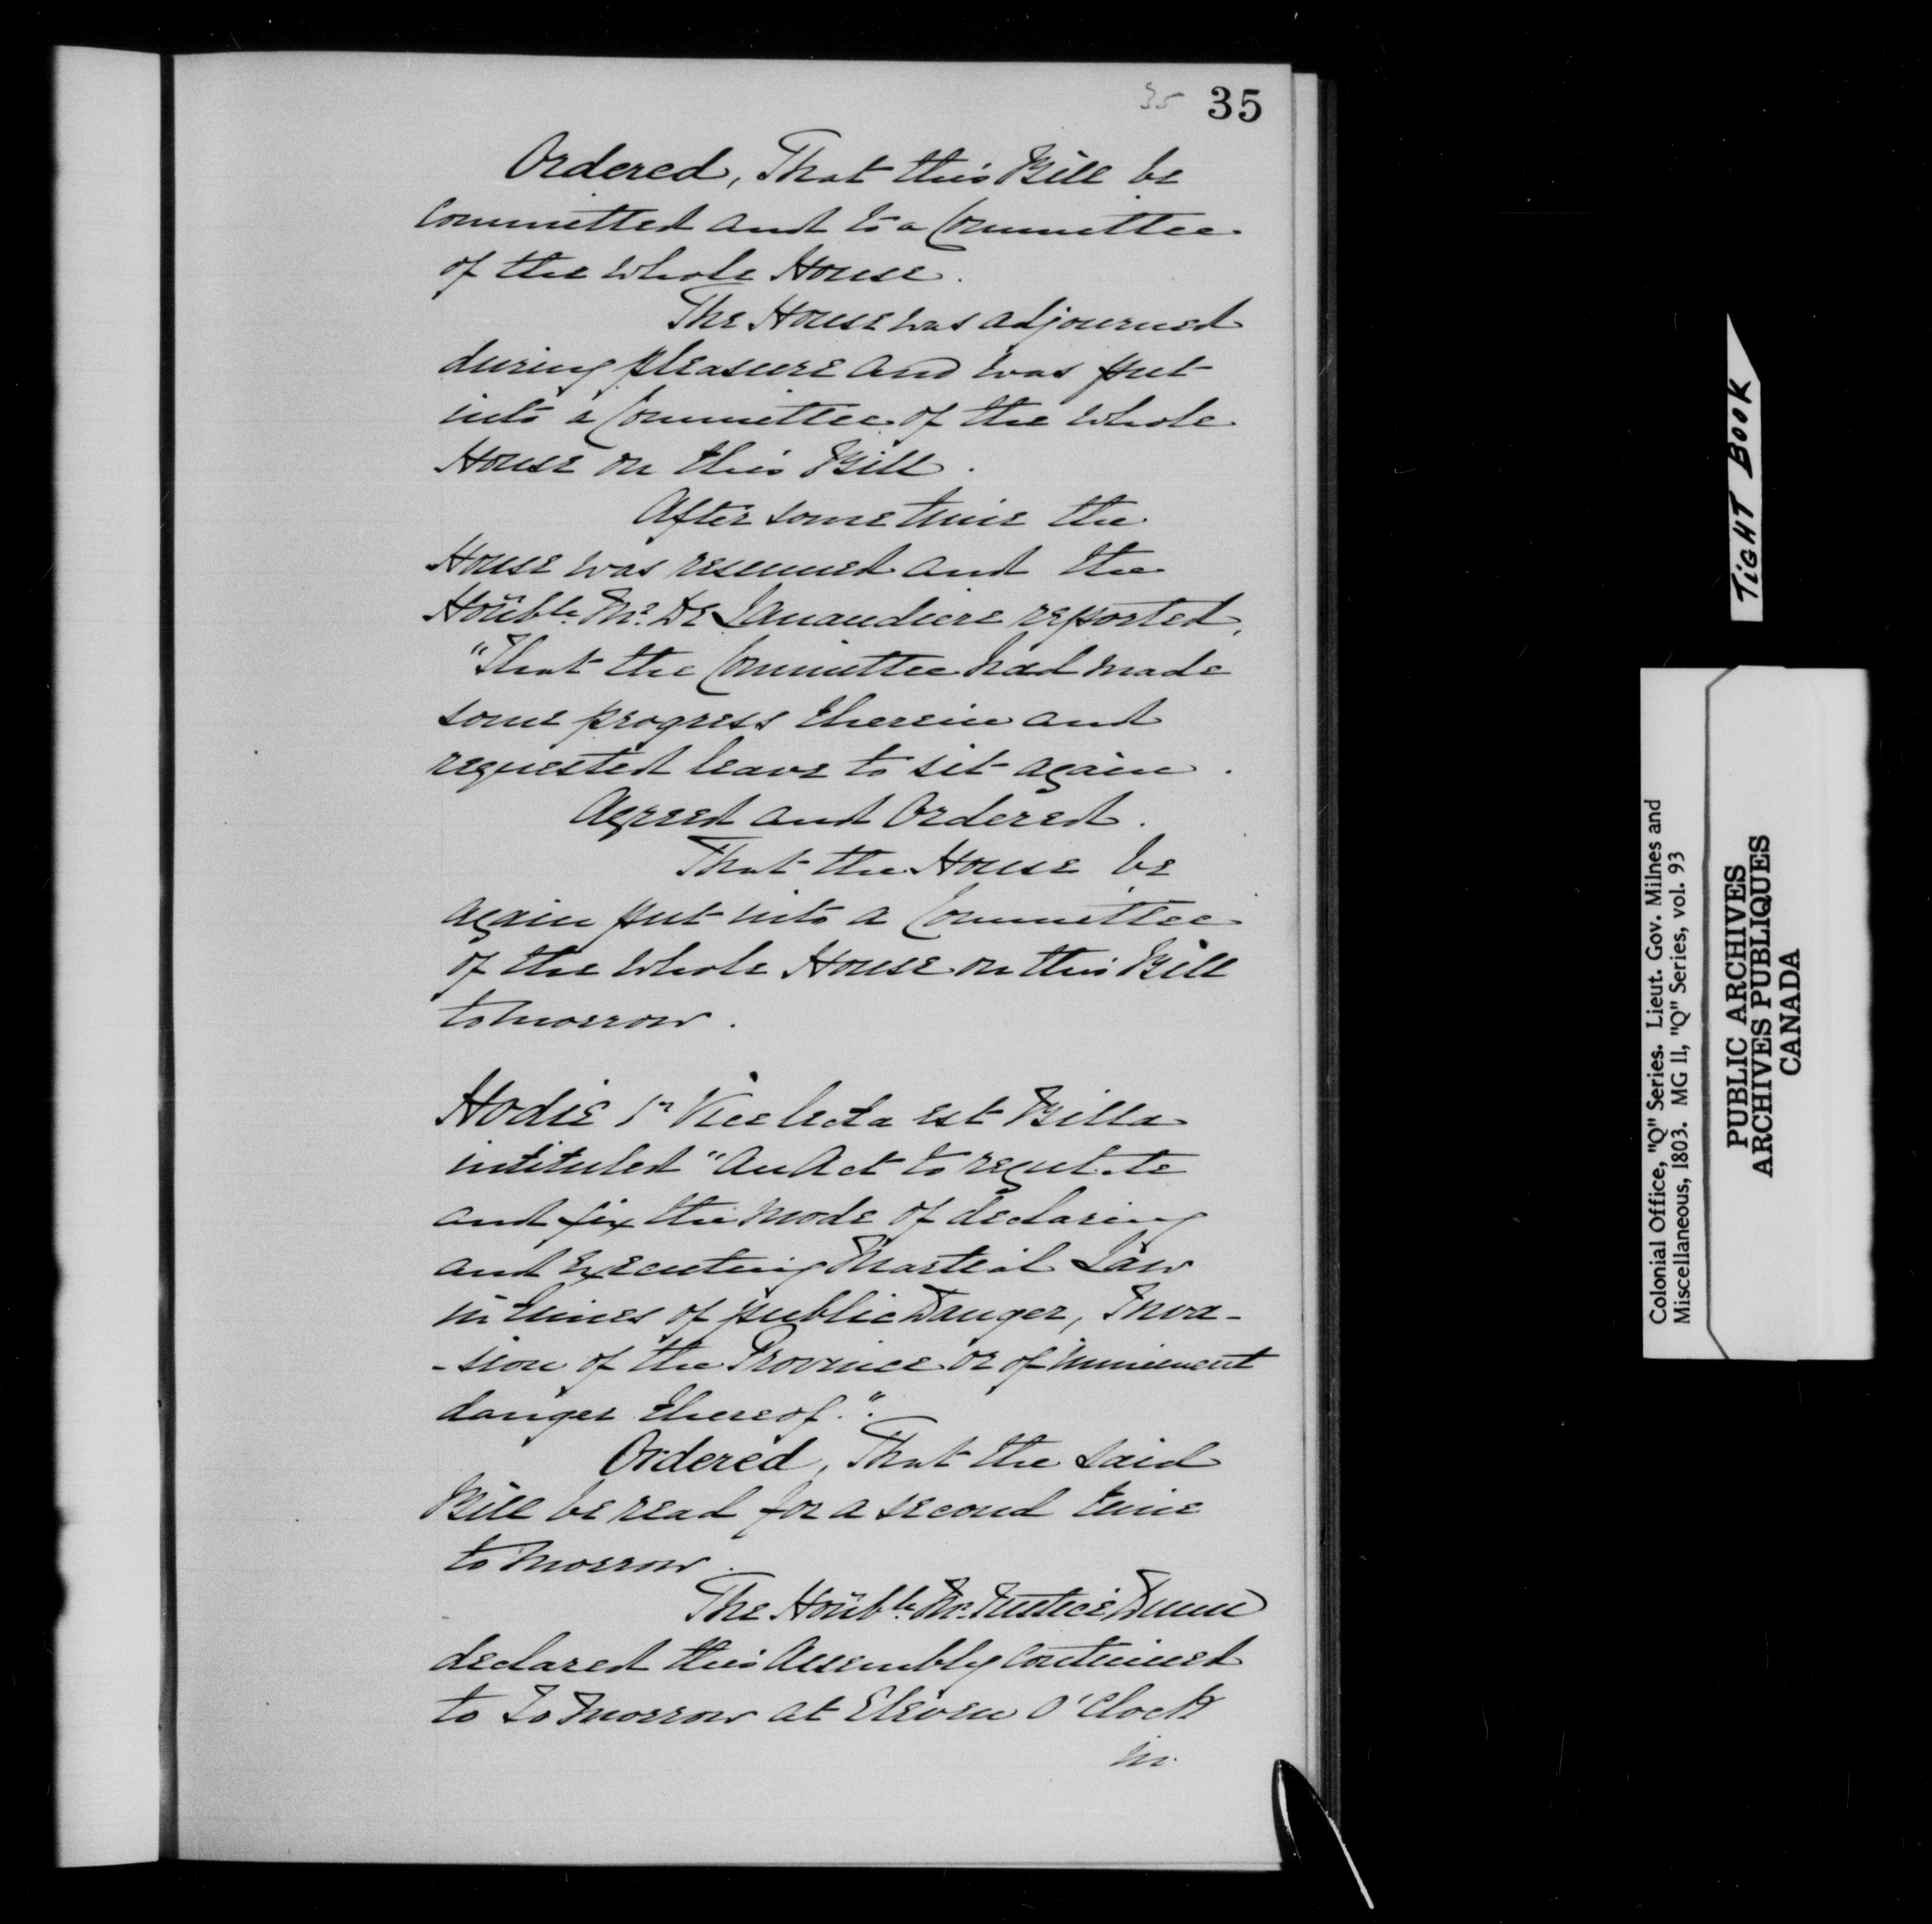 35 35
Ordered, That this Bill be
Committed and to a Committee
of the whole House.
The House was adjourned
during pleasure and was put
into a Committee of the whole
House on this Bill.
After some time the
House was resumed and the
Honble. Mr. De Lanaudiere reported,
"That the Committee had made
some progress therein and
requested leave to sit again.
Agreed and Ordered.
That the House be
again put into a Committee
of the whole House on this Bill
tomorrow.
Hodie 1a Vice lecta est Billa
intituled "An Act to regulate
and fix the mode of declaring
and executing Martial Law
in times of public Danger, Inva-
-sion of the Province or of imminent
danger thereof."
Ordered, That the said
Bill be read for a second time
to morrow.
The Honble. Mr. Justice Dunn
declared this Assembly continued
to To Morrow at Eleven O'Clock
in
TIGHT BOOK
Colonial Office, "Q" Series. Lieut. Gov. Milnes and
Miscellaneous, 1803. MG 11, "Q" Series, vol. 93
PUBLIC ARCHIVES
ARCHIVES PUBLIQUES
CANADA